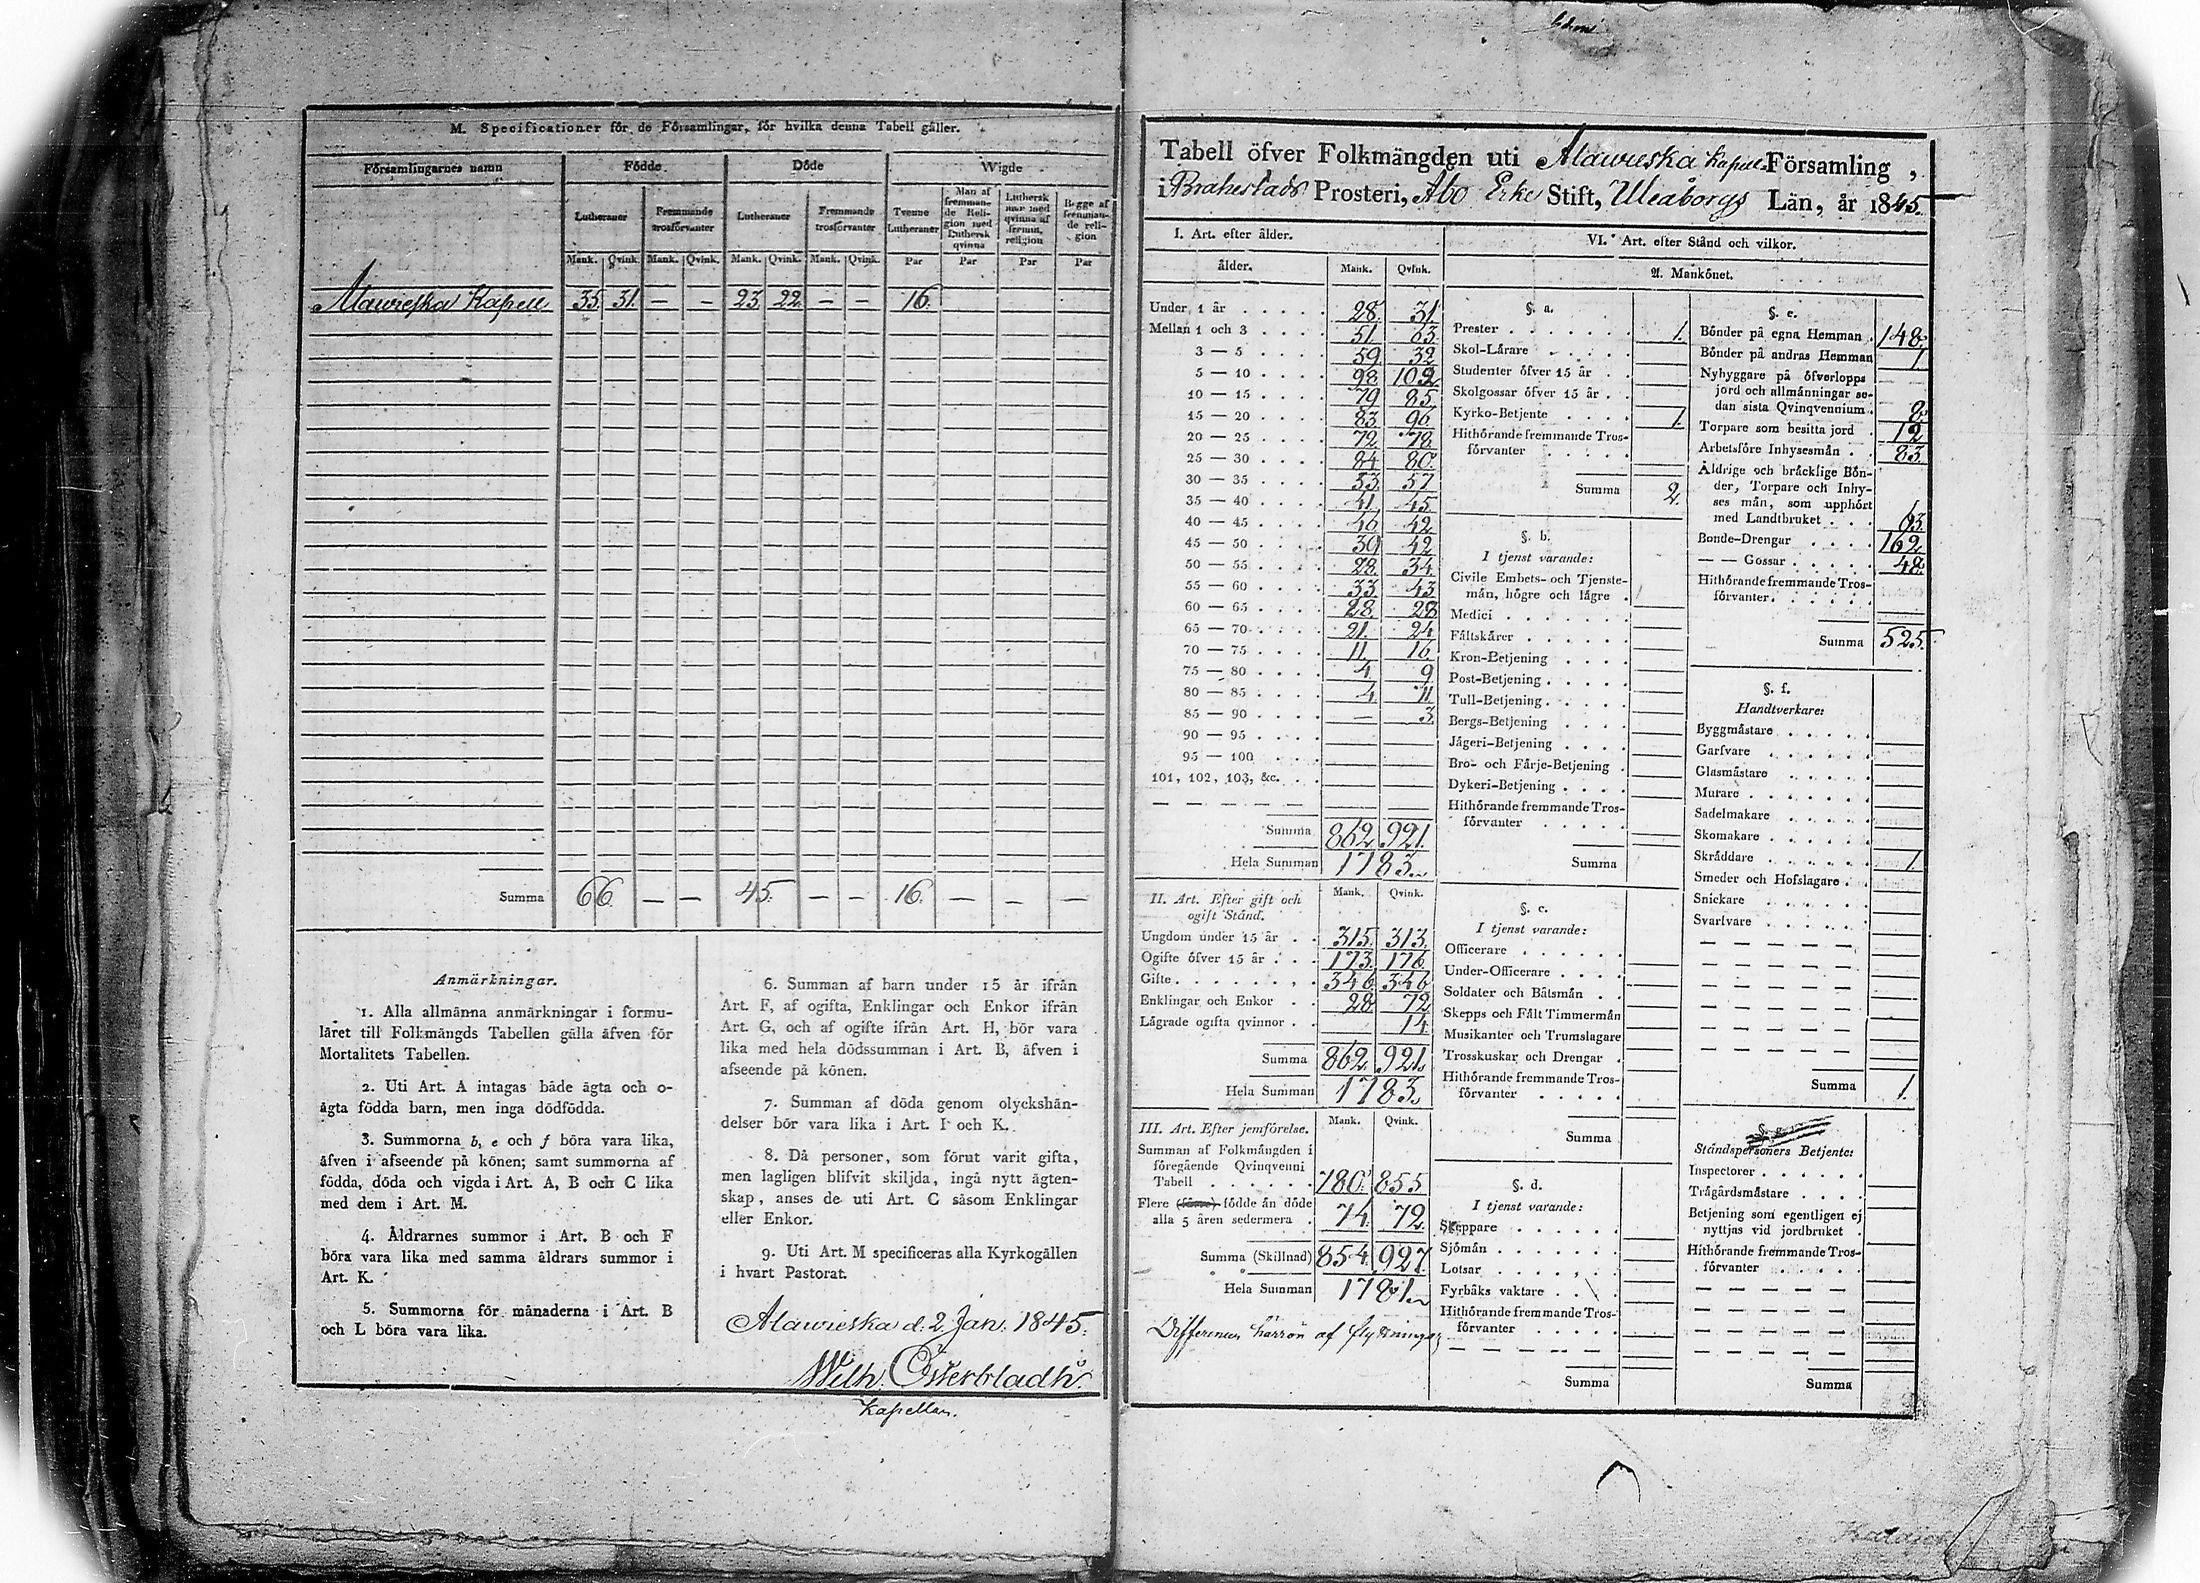 M. Specificationer för de Församlingar, för hvilka denna Tabell gäller.
Församlingarnes namn Födde Döde Wigde
Lutheraner Fremmande trosförvanter Lutheraner Fremmande trosförvanter Tvenne Lutheraner Man af fremmande Religion med Luthersk qvinna Luthersk man med qvinna af fremm. religion Begge af fremmande religion
Mank. Qvink. Mank. Qvink. Mank. Qvink. Mank. Qvink. Par Par Par Par
Alawieska Kapell 35. 31. — — 23. 22. — — 16.
Summa 66. — — 45. — — 16. — — —
Anmärkningar.
1. Alla allmänna anmärkningar i formu-
läret till Folkmängds Tabellen gälla äfven för
Mortalitets Tabellen.
2. Uti Art. A intagas både ägta och o-
ägta födda barn, men inga dödfödda.
3. Summorna b, e och f böra vara lika,
äfven i afseende på könen; samt summorna af
födda, döda och vigda i Art. A, B och C lika
med dem i Art. M.
4. Åldrarnes summor i Art. B och F
böra vara lika med samma åldrars summor i
Art. K.
5. Summorna för månaderna i Art. B
och L böra vara lika.
6. Summan af barn under 15 år ifrån
Art. F, af ogifta, Enklingar och Enkor ifrån
Art. G, och af ogifte ifrån Art. H, bör vara
lika med hela dödssumman i Art. B, äfven i
afseende på könen.
7. Summan af döda genom olyckshän-
delser bör vara lika i Art. I och K.
8. Då personer, som förut varit gifta,
men lagligen blifvit skiljda, ingå nytt ägten-
skap, anses de uti Art. C såsom Enklingar
eller Enkor.
9. Uti Art. M specificeras alla Kyrkogällen
i hvart Pastorat.
Alawieska d: 2 Jan: 1845.
Wilh. Österbladh.
Kapellan.
Tabell öfver Folkmängden uti Alawieska Kapell Församling,
i Brahestads Prosteri, Åbo Erke Stift, Uleåborgs Län, år 1845.
I. Art. efter ålder.
ålder. Mank. Qvink.
Under 1 år 28. 31.
Mellan 1 och 3 51. 63.
3 — 5 59. 32.
5 — 10 98. 102.
10 — 15 79. 85.
15 — 20 83. 96.
20 — 25 72. 78.
25 — 30 84. 80.
30 — 35 53. 57
35 — 40 41. 45.
40 — 45 46. 42.
45 — 50 39. 42.
50 — 55 28. 34.
55 — 60 33. 43.
60 — 65 28. 28.
65 — 70 21. 24.
70 — 75 11. 16.
75 — 80 4. 9.
80 — 85 4. 11.
85 — 90 — 3.
90 — 95
95 — 100
101, 102, 103, &c.
Summa 862. 921.
Hela Summan 1783.
II. Art. Efter gift och ogift Stånd. Mank. Qvink.
Ungdom under 15 år 315. 313.
Ogifte öfver 15 år 173. 176.
Gifte 346. 346.
Enklingar och Enkor 28. 72.
Lägrade ogifta qvinnor 14.
Summa 862. 921.
Hela Summan 1783.
III. Art. Efter jemförelse. Mank. Qvink.
Summan af Folkmängden i
föregående Qvinqvenni
Tabell 780. 855
Flere (färre) födde än döde
alla 5 åren sedermera 74. 72.
Summa (Skillnad) 854. 927.
Hela Summan 1781.
Differencen härrör af flyttningar
VI. Art. efter Stånd och vilkor.
A. Mankönet.
§. a.
Prester 1.
Skol-Lärare
Studenter öfver 15 år
Skolgossar öfver 15 år
Kyrko-Betjente 1.
Hithörande fremmande Tros-
förvanter
Summa 2.
§. b.
I tjenst varande:
Civile Embets- och Tjenste-
män, högre och lägre
Medici
Fältskärer
Kron-Betjening
Post-Betjening
Tull-Betjening
Bergs-Betjening
Jägeri-Betjening
Bro- och Färje-Betjening
Dykeri-Betjening
Hithörande fremmande Tros-
förvanter
Summa
§. c.
I tjenst varande:
Officerare
Under-Officerare
Soldater och Båtsmän
Skepps och Fält Timmermän
Musikanter och Trumslagare
Trosskuskar och Drengar
Hithörande fremmande Tros-
förvanter
Summa
§. d.
I tjenst varande:
Skeppare
Sjömän
Lotsar
Fyrbåks vaktare
Hithörande fremmande Tros-
förvanter
Summa
§. e.
Bönder på egna Hemman 148.
Bönder på andras Hemman 1.
Nybyggare på öfverlopps
jord och allmänningar se-
dan sista Qvinqvennium 8.
Torpare som besitta jord 12.
Arbetsföre Inhysesmän 83.
Äldrige och bräcklige Bön-
der, Torpare och Inhy-
ses män, som upphört
med Landtbruket 63.
Bonde-Drengar 162.
— — Gossar 48.
Hithörande fremmande Tros-
förvanter
Summa 525.
§. f.
Handtverkare:
Byggmästare
Garfvare
Glasmästare
Murare
Sadelmakare
Skomakare
Skräddare 1.
Smeder och Hofslagare
Snickare
Svarfvare
Summa 1.
§. g.
Ståndspersoners Betjente:
Inspectorer
Trägårdsmästare
Betjening som egentligen ej
nyttjas vid jordbruket
Hithörande fremmande Tros-
förvanter
Summa